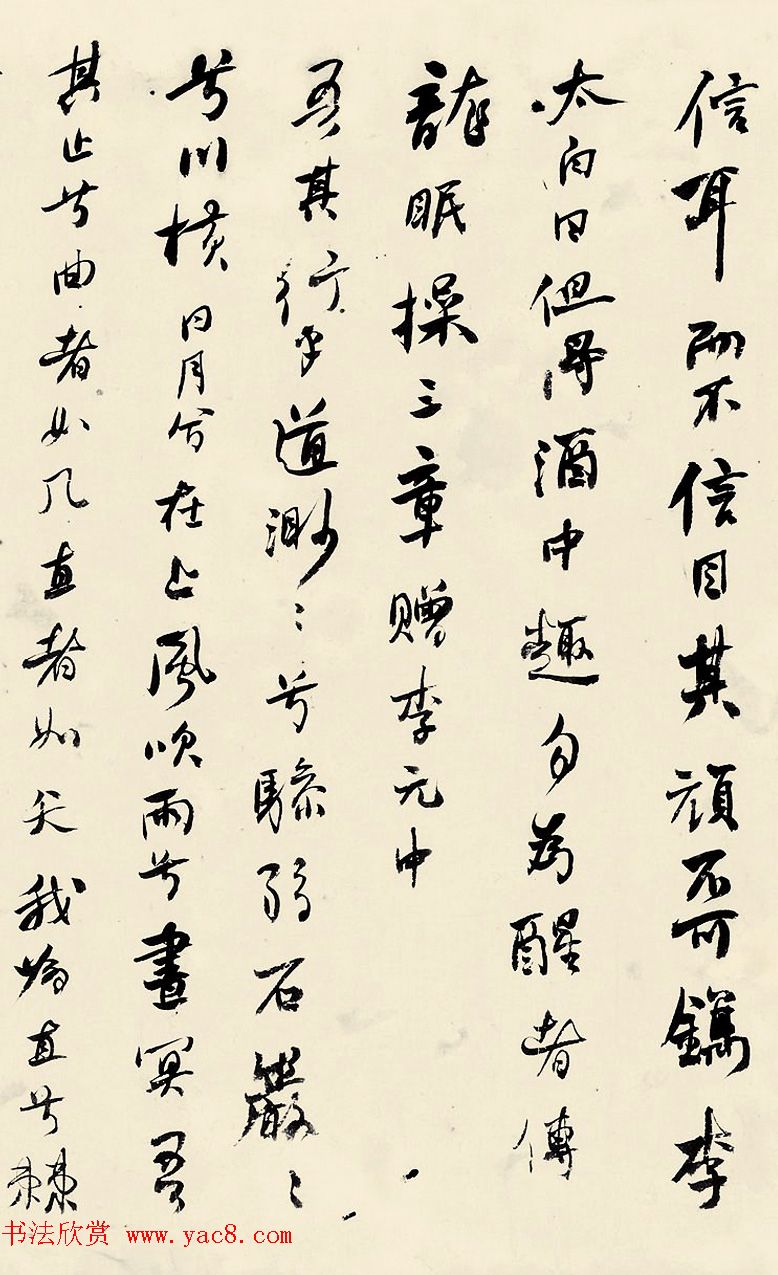 信耳而不信目其頑不可鐫李
太白曰但得酒中趣勿為醒者傳
龍眠操三章贈李元中
吾其行乎道渺〻兮驂弱石巖〻
兮川橫日月兮在上風吹雨兮晝冥吾
其止兮曲者如几直者如矢我直兮棘
书法欣赏 www.yac8.com